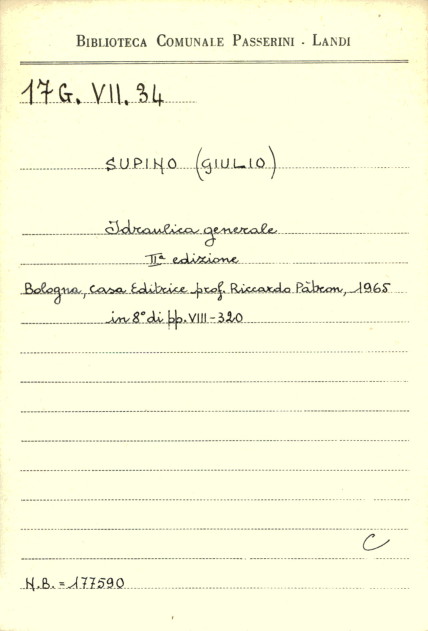 BIBLIOTECA COMUNALE PASSERINI - LANDI
17 G. VII. 34
SUPINO (GIULIO)
Idraulica generale
IIª edizione
Bologna, Casa Editrice prof. Riccardo Pàtron, 1965
in 8° di pp. VIII-320
C
N.B. = 177590